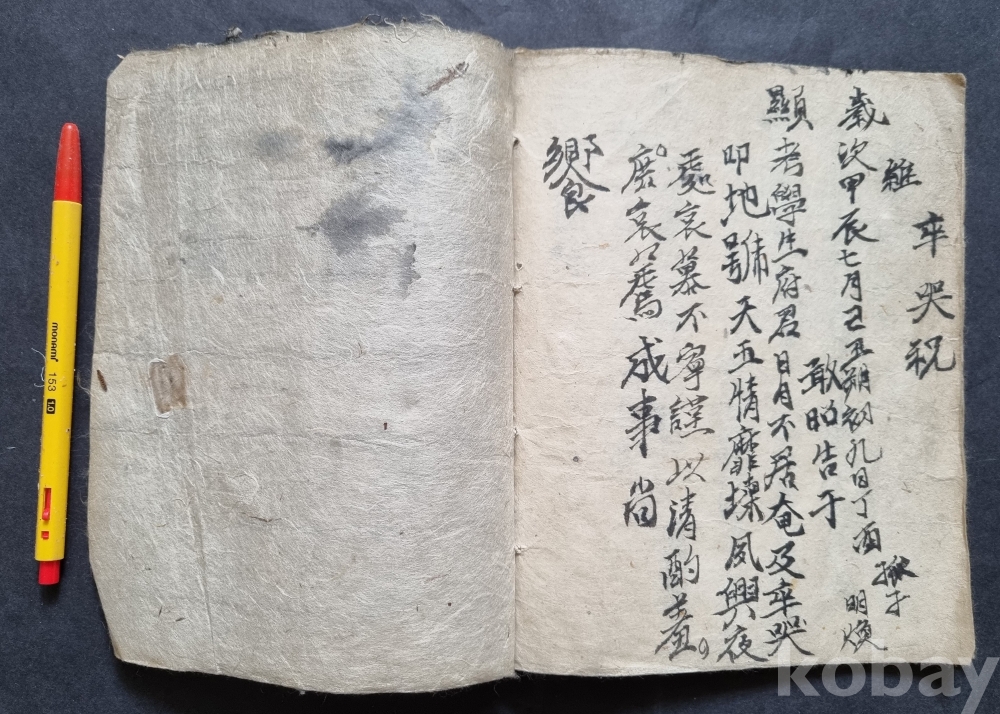 卒哭祝
維
歲次甲辰七月己丑朔初九日丁酉 孤子 明煥
敢昭告于
顯考學生府君日月不居奄及卒哭
叩地號天五情靡夙興夜
處哀慕不寧謹以清酌羞
庶哀薦成事尚
饗
monami 153 1.0
kobay